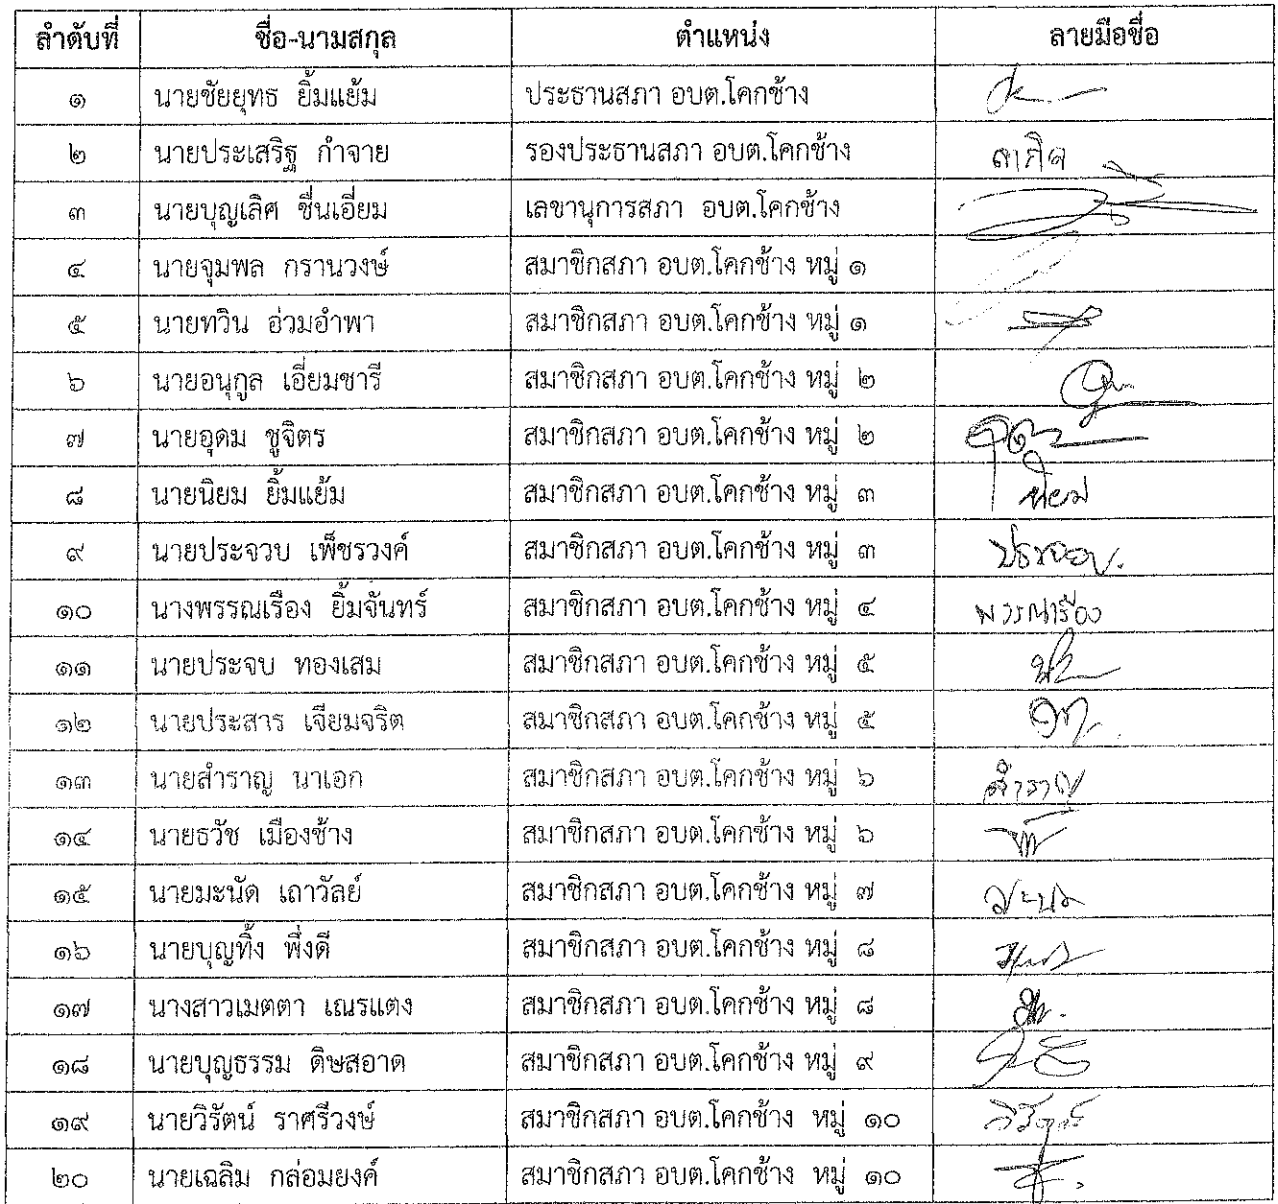 ลำดับที่ ชื่อ-นามสกุล ตำแหน่ง ลายมือชื่อ
๑ นายชัยยุทธ ยิ้มแย้ม ประธานสภา อบต.โคกช้าง
๒ นายประเสริฐ กำจาย รองประธานสภา อบต.โคกช้าง
๓ นายบุญเลิศ ชื่นเอี่ยม เลขานุการสภา อบต.โคกช้าง
๔ นายจุมพล กรานวงษ์ สมาชิกสภา อบต.โคกช้าง หมู่ ๑
๕ นายทวิน อ่วมอำพา สมาชิกสภา อบต.โคกช้าง หมู่ ๑
๖ นายอนุกูล เอี่ยมชารี สมาชิกสภา อบต.โคกช้าง หมู่ ๒
๗ นายอุดม ชูจิตร สมาชิกสภา อบต.โคกช้าง หมู่ ๒
๘ นายนิยม ยิ้มแย้ม สมาชิกสภา อบต.โคกช้าง หมู่ ๓ นิยม
๙ นายประจวบ เพ็ชรวงค์ สมาชิกสภา อบต.โคกช้าง หมู่ ๓ ประจวบ.
๑๐ นางพรรณเรือง ยิ้มจันทร์ สมาชิกสภา อบต.โคกช้าง หมู่ ๔ พรรณเรือง
๑๑ นายประจบ ทองเสม สมาชิกสภา อบต.โคกช้าง หมู่ ๕
๑๒ นายประสาร เจียมจริต สมาชิกสภา อบต.โคกช้าง หมู่ ๕
๑๓ นายสำราญ นาเอก สมาชิกสภา อบต.โคกช้าง หมู่ ๖ สำราญ
๑๔ นายธวัช เมืองช้าง สมาชิกสภา อบต.โคกช้าง หมู่ ๖
๑๕ นายมะนัด เถาวัลย์ สมาชิกสภา อบต.โคกช้าง หมู่ ๗
๑๖ นายบุญทิ้ง พึ่งดี สมาชิกสภา อบต.โคกช้าง หมู่ ๘
๑๗ นางสาวเมตตา เณรแตง สมาชิกสภา อบต.โคกช้าง หมู่ ๘
๑๘ นายบุญธรรม ดิษสอาด สมาชิกสภา อบต.โคกช้าง หมู่ ๙
๑๙ นายวิรัตน์ ราศรีวงษ์ สมาชิกสภา อบต.โคกช้าง หมู่ ๑๐ วิรัตน์
๒๐ นายเฉลิม กล่อมยงค์ สมาชิกสภา อบต.โคกช้าง หมู่ ๑๐